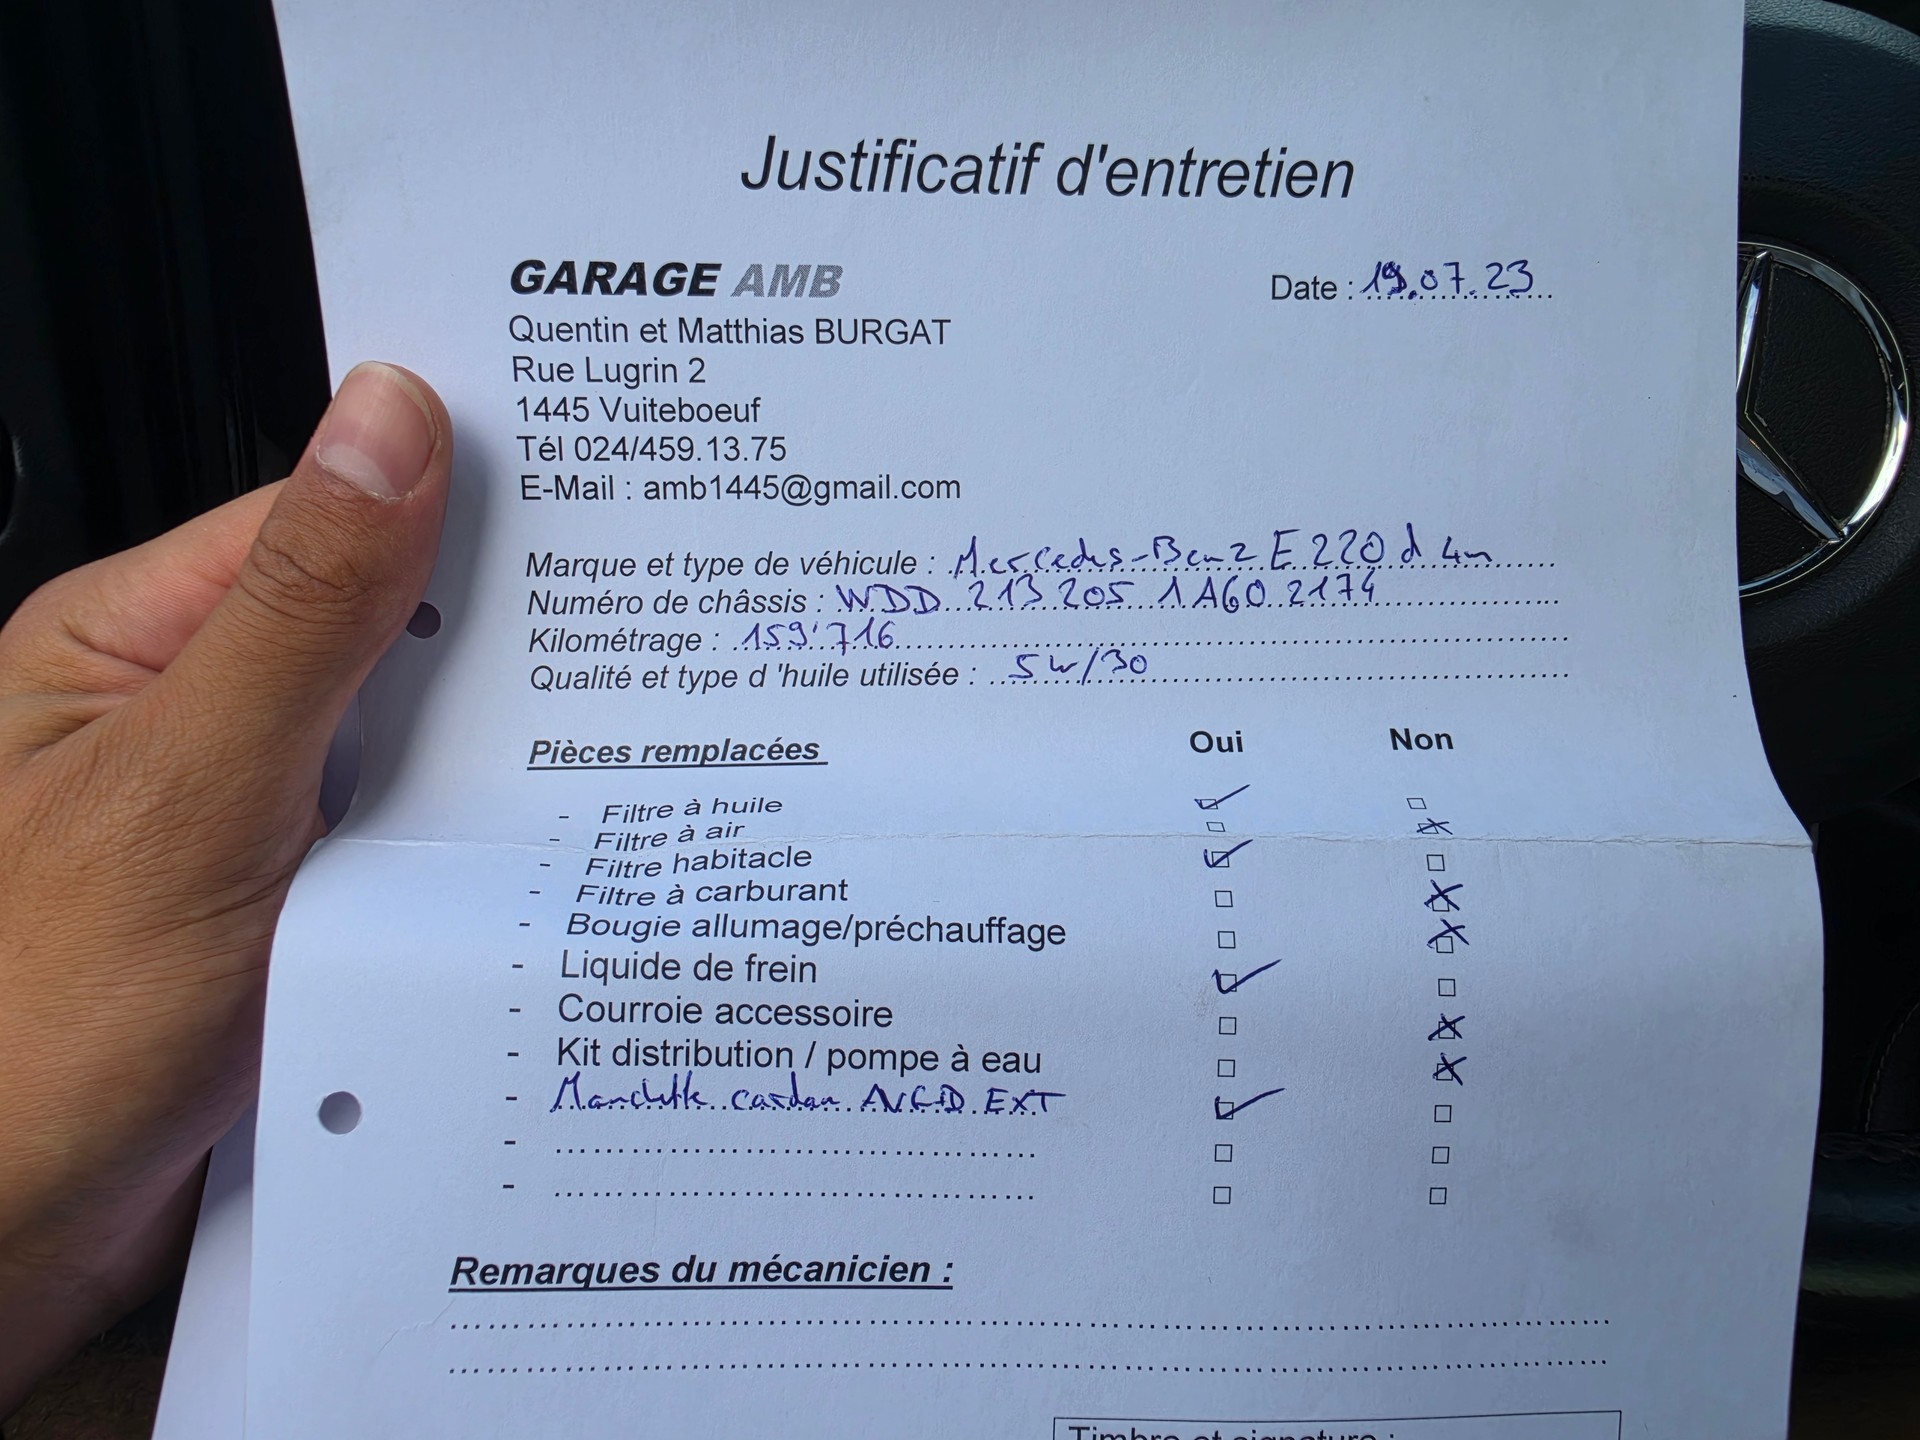 Justificatif d'entretien
GARAGE AMB
Date : 19.07.23
Quentin et Matthias BURGAT
Rue Lugrin 2
1445 Vuiteboeuf
Tél 024/459.13.75
E-Mail : amb1445@gmail.com
Marque et type de véhicule : Mercedes-Benz E 220 d 4m
Numéro de châssis : WDD 213 205 1 A60 2174
Kilométrage : 159'716
Qualité et type d 'huile utilisée : 5w/30
Pièces remplacées Oui Non
- Filtre à huile
- Filtre à air
- Filtre habitacle
- Filtre à carburant
- Bougie allumage/préchauffage
- Liquide de frein
- Courroie accessoire
- Kit distribution / pompe à eau
- Manchette cardan EXT
Remarques du mécanicien :
Timbre et signature :